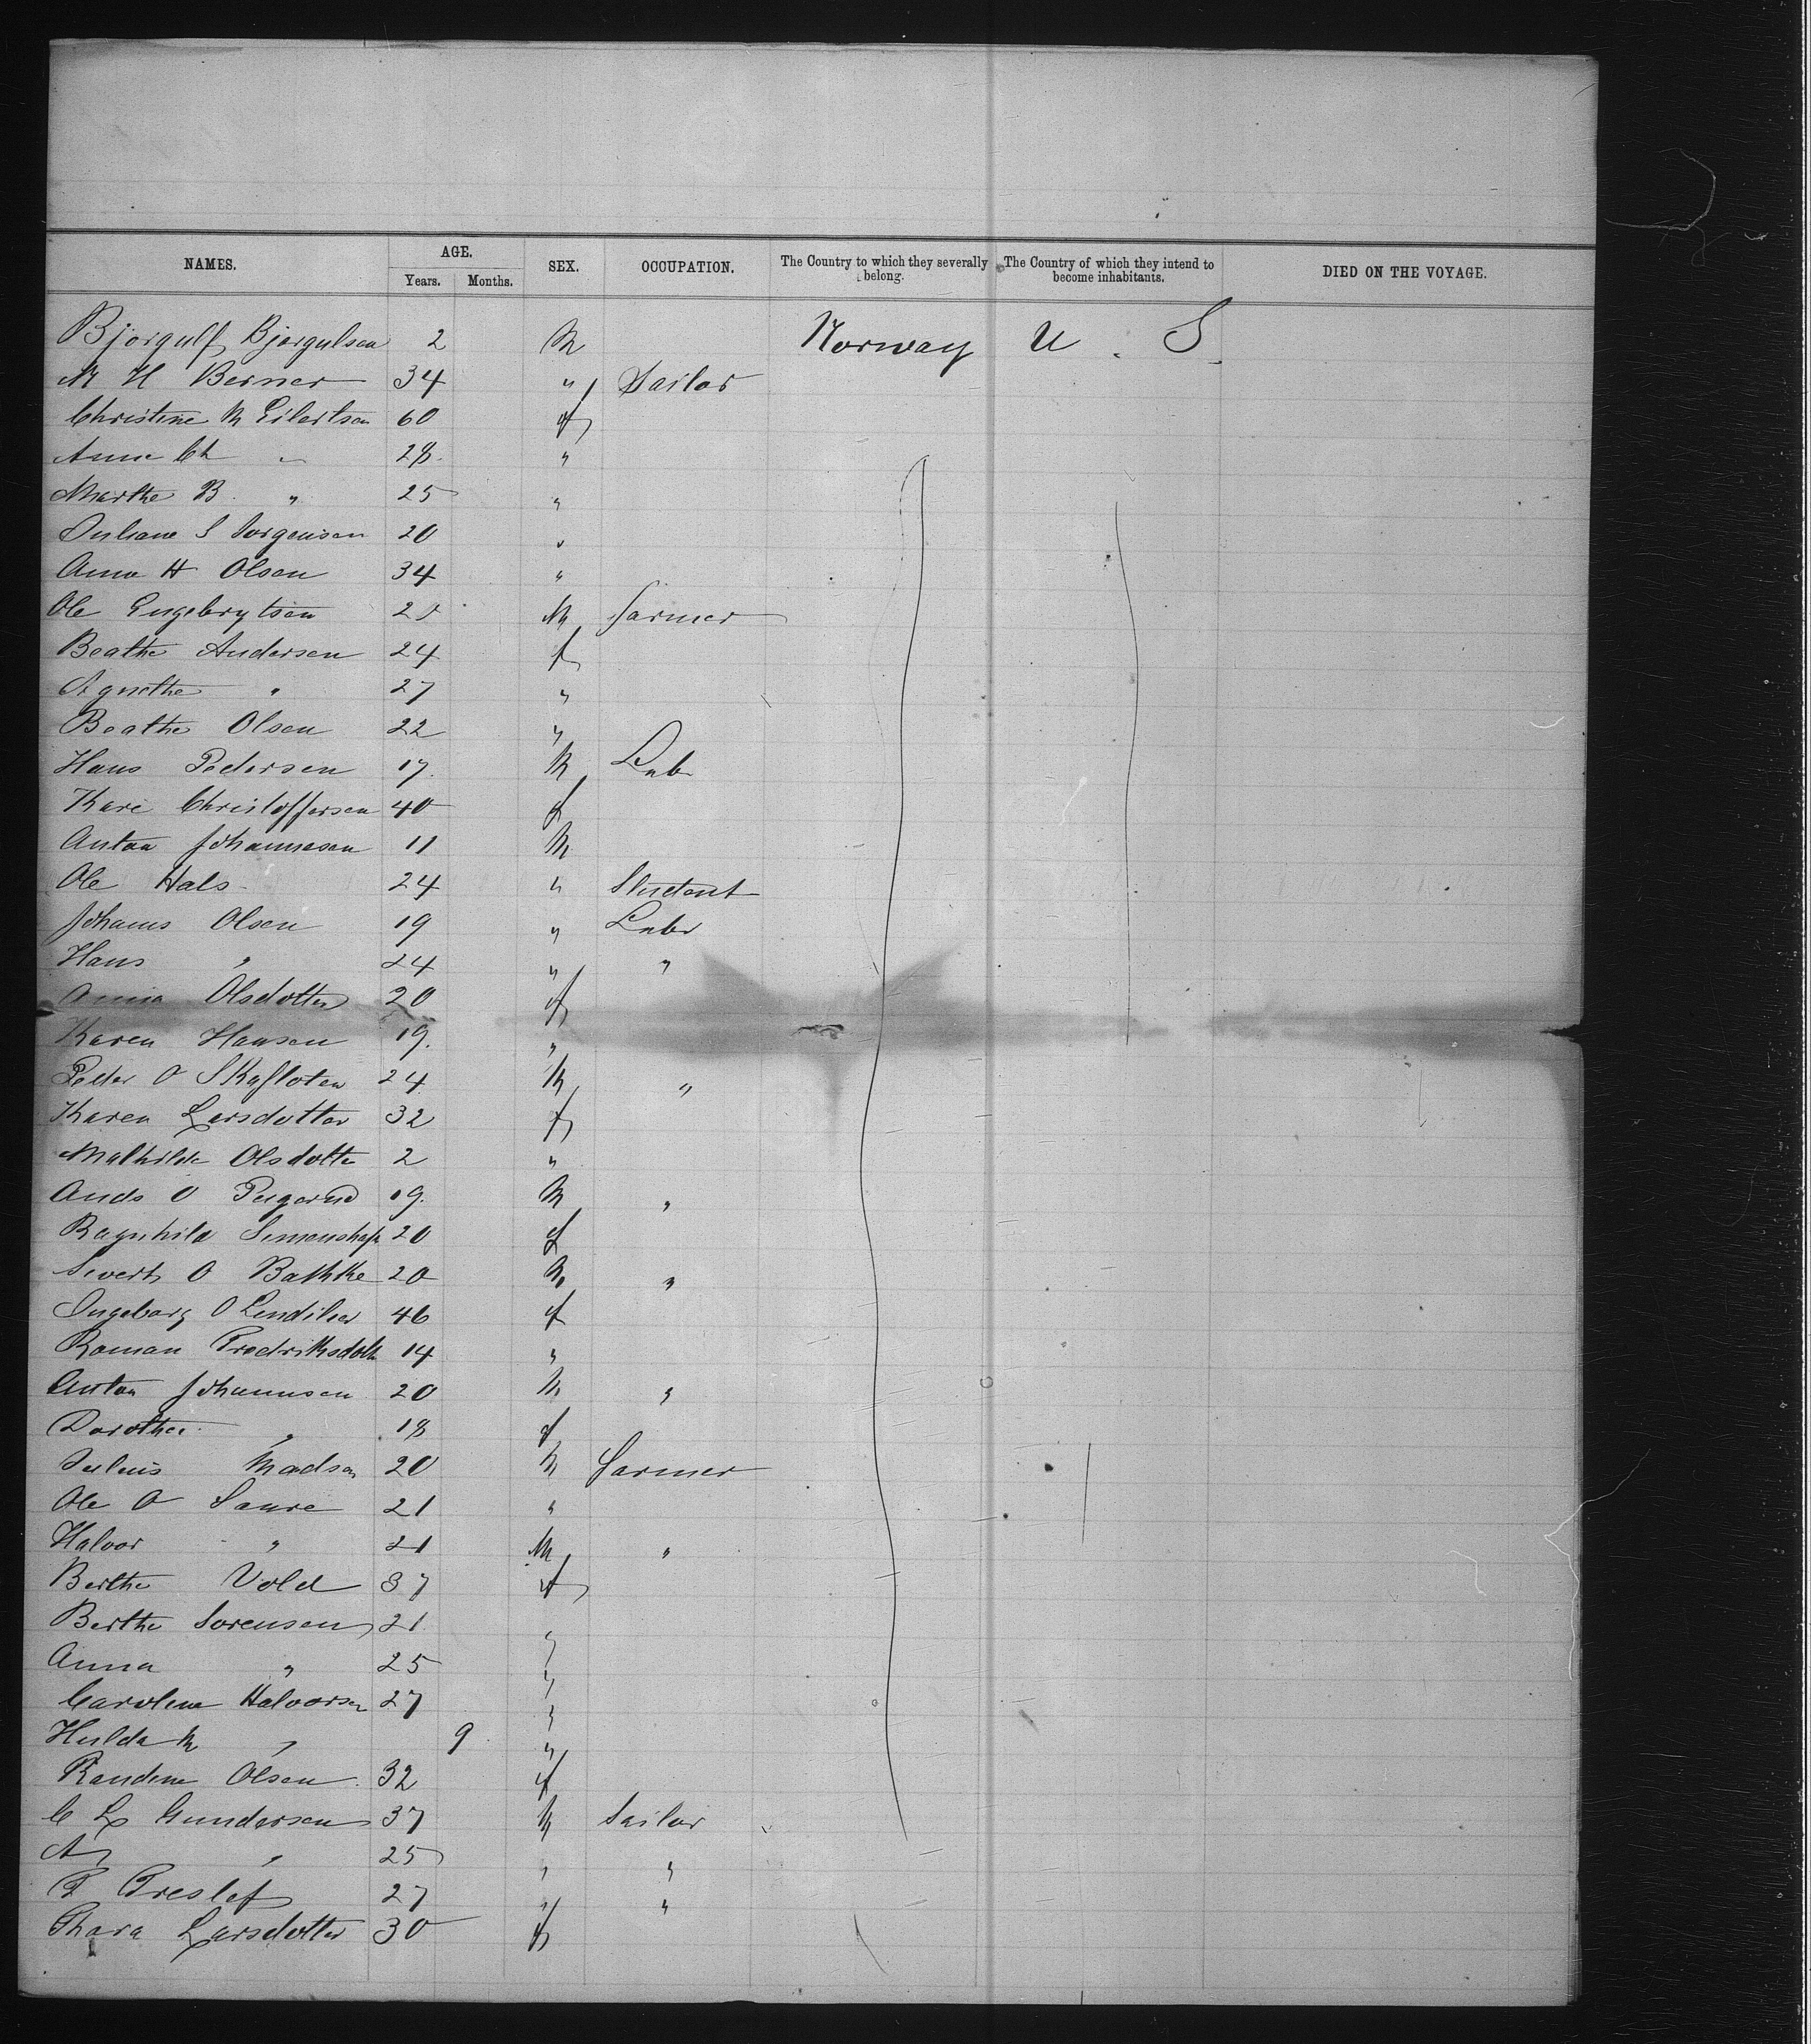 NAMES. AGE. SEX. OCCUPATION. The Country to which they severally belong. The Country of which they intend to become inhabitants. DIED ON THE VOYAGE.
Years. Months.
Bjorgulf Bjorgulsen 2 M Norway U. S.
M H Berner 34 " Sailor
Christine M Eilertsen 60 f
Anne Ch " 28 "
Marthe B. " 25 "
Juliane S Jorgensen 20 "
Anna H Olsen 34 "
Ole Engebrytsen 25 M farmer
Beathe Andersen 24 f
Agnethe " 27 "
Beathe Olsen 22 "
Hans Pedersen 17 M Labr
Kari Christoffersen 40 f
Anton Johannesen 11 M
Ole Hals 24 " Student
Johanns Olsen 19 " Labr
Hans " 24 " "
Anna Olsdotter 20 f
Karen Hansen 19. "
Peder O Skafloten 24 M "
Karen Larsdotter 32 f
Mathilde Olsdotte 2 "
Ands O 19. M "
Ragnhild 20 f
Sivert O Bathke 20 M "
Ingeborg O 46 f
Roman Fredriksdott 14 "
Anton Johannsen 20 M "
Dorothea " 18 f
Julius Madsen 20 M farmer
Ole O Saure 21 "
Halvor " 21 M "
Berthe Vold 37 f
Berthe Sorensen 21 "
Anna " 25 "
Caroline Halvorsen 27 "
Hulda M " 9 "
Randine Olsen 32 f
C L Gundersen 37 M Sailor
A " 25 " "
F Freslef 27 " "
Thara Larsdotter 30 f